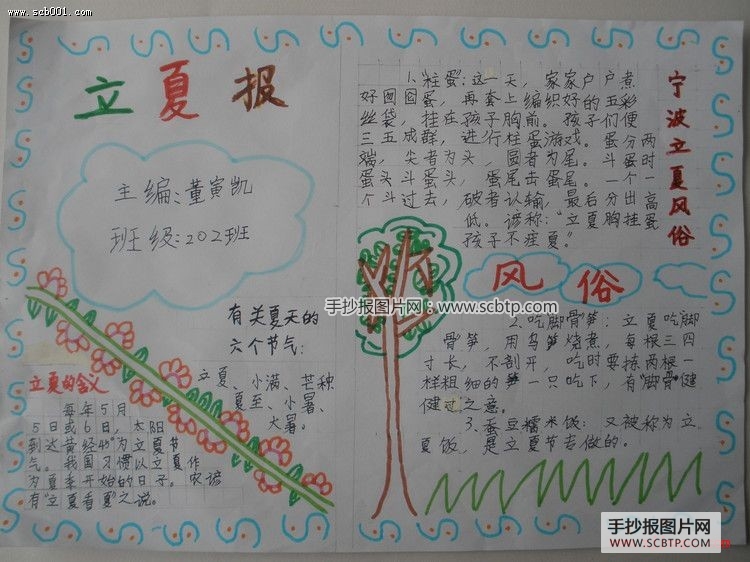 www.scb001.com
立夏报
主编:董寅凯
班级:202班
有关夏天的
六个节气:
立夏、小满、芒种
夏至、小暑、
大暑。
立夏的含义
每年5月
5日或6日,太阳
到达黄经45°为立夏节
气。我国习惯以立夏作
为夏季开始的日子。农谚
有“立夏看夏”之说。
宁波立夏风俗
1.柱蛋:这一天,家家户户煮
好囫囵蛋,再套上编织好的五彩
丝袋,挂在孩子胸前。孩子们便
三五成群,进行柱蛋游戏。蛋分两
端,尖者为头,圆者为尾。斗蛋时
蛋头斗蛋头,蛋尾击蛋尾。一个一
个斗过去,破者认输,最后分出高
低。谚称:“立夏胸挂蛋
孩子不疰夏。”
风俗
手抄报图片网 www.scbtp.com
2.吃脚骨笋:立夏吃脚
骨笋,用乌笋烧煮,每根三四
寸长,不剖开,吃时要拣两根一
样粗细的笋一只吃下,有“脚骨健
健过”之意。
3.蚕豆糯米饭:又被称为立
夏饭,是立夏节专做的。
手抄报图片网
WWW.SCBTP.COM